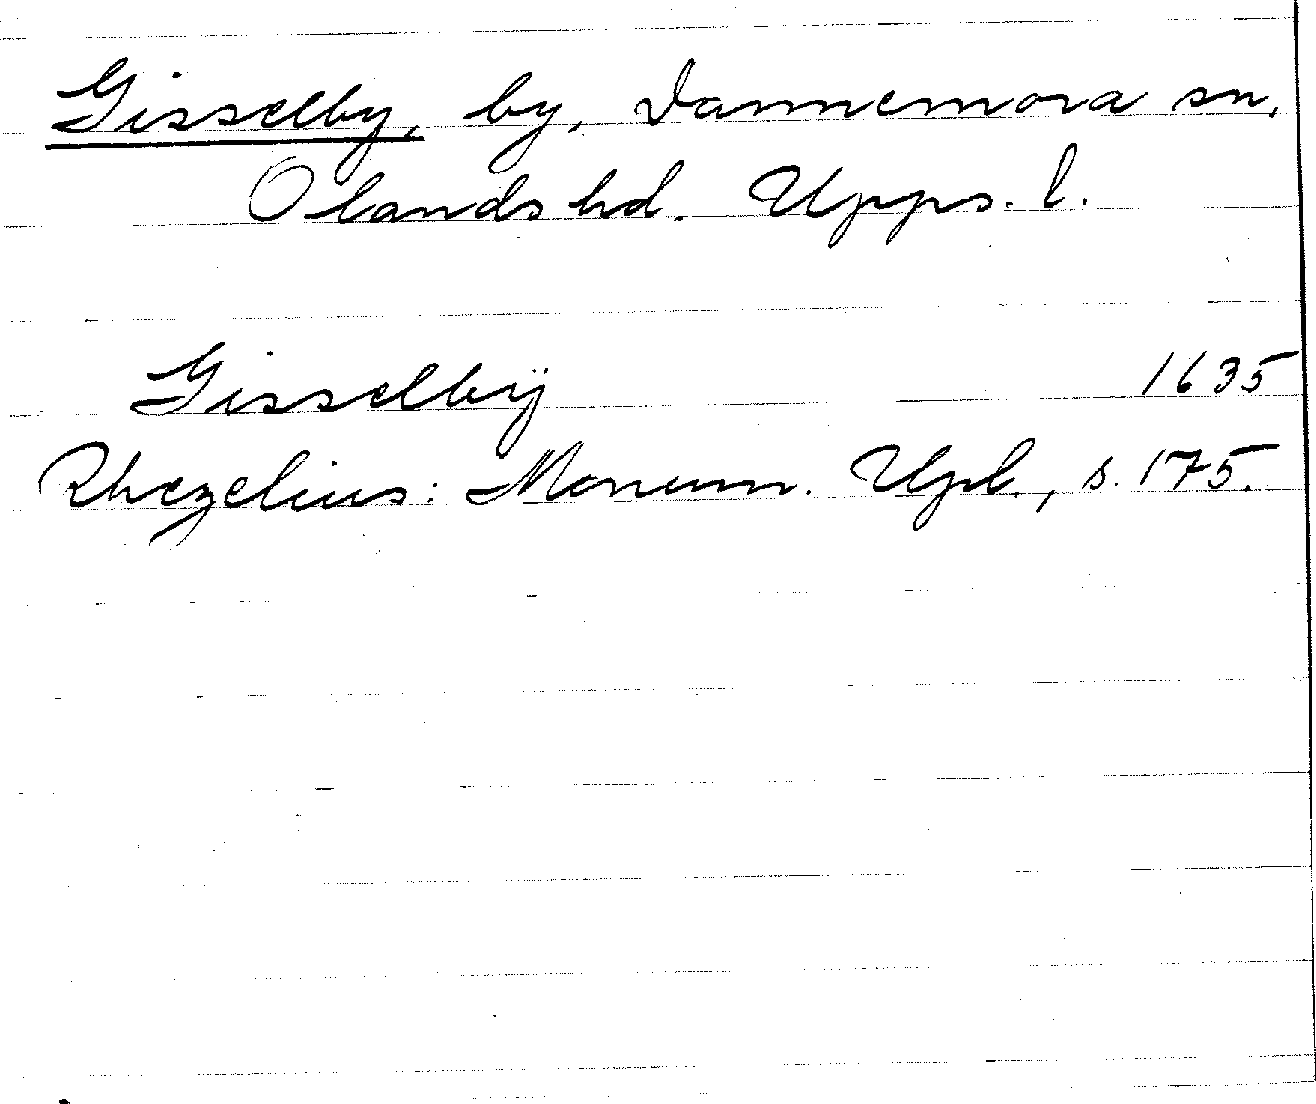 Gisselby, by, Dannemora sn,
Olands hd. Upps. l.
Gisselbÿ 1635
Rhezelius: Monum. Upl., s. 175.